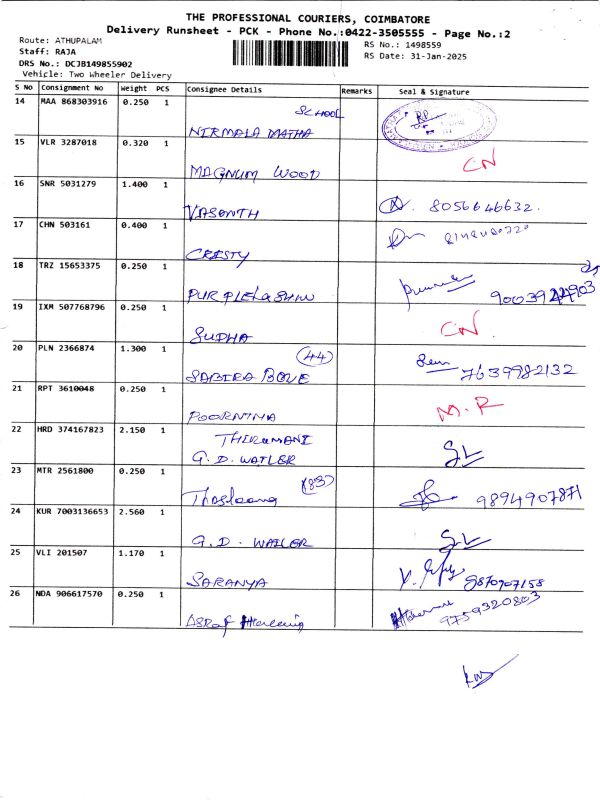 THE PROFESSIONAL COURIERS, COIMBATORE
Delivery Runsheet - PCK - Phone No.:0422-3505555 - Page No.:2
Route: ATHUPALAM
RS No.: 1498559
Staff: RAJA
RS Date: 31-Jan-2025
DRS No.: DCJB149855902
Vehicle: Two Wheeler Delivery
S No Consignment No Weight PCS Consignee Details Remarks Seal & Signature
14 MAA 868303916 0.250 1
SCHOOL
NIRMALA MATHA
15 VLR 3287018 0.320 1
MAGNUM WOOD CN
16 SNR 5031279 1.400 1
VASONTH 8056646632.
17 CHN 503161 0.400 1
CRESTY
18 TRZ 15653375 0.250 1
19 IXM 507768796 0.250 1
SUDHA CN
20 PLN 2366874 1.300 1
(44)
SABIRA 7639982132
21 RPT 3610048 0.250 1
POORNIMA M.R
22 HRD 374167823 2.150 1
THIRUMANI
G.D. WAILER SL
23 MTR 2561800 0.250 1
(83)
9894907871
24 KUR 7003136653 2.560 1
G.D. WAILER SL
25 VLI 201507 1.170 1
SARANYA 9870907158
26 NDA 906617570 0.250 1
9759320803